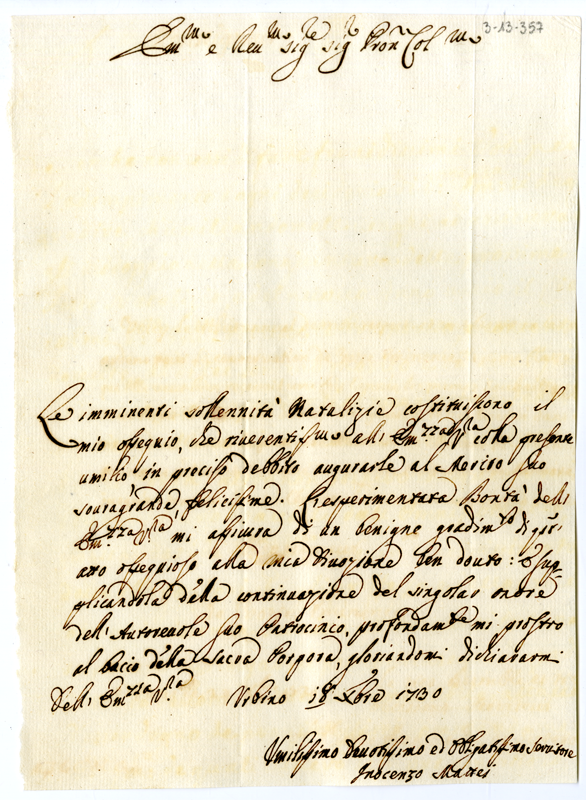 3-13-357
Em.mo e Reu.mo sig.re sig.r Pron Col.mo
Le imminenti sollennità Natalizie costituiscono il
mio ossequio, che riuerentiss.mo all' Em.zza V.ra colla presente
umilio in preciso debbito augurarle al Merito suo
souragrande, felicissime. L'esperimentata Bontà dell'
Em.zza V.ra mi assicura di un benigno gradim.to di q.sto
atto ossequioso alla mia Diuozione ben douto: E sup-
plicandola della continuazione del singolar onore
dell' Autoreuole suo Patrocinio, profondam.te mi prostro
al bacio della Sacra Porpora, gloriandomi dichiararmi
Dell' Em.zza V.ra Urbino 18 Xbre 1730
Umilissimo Deuotissimo ed Obligatissimo Seruitore
Inocenzo Mattei